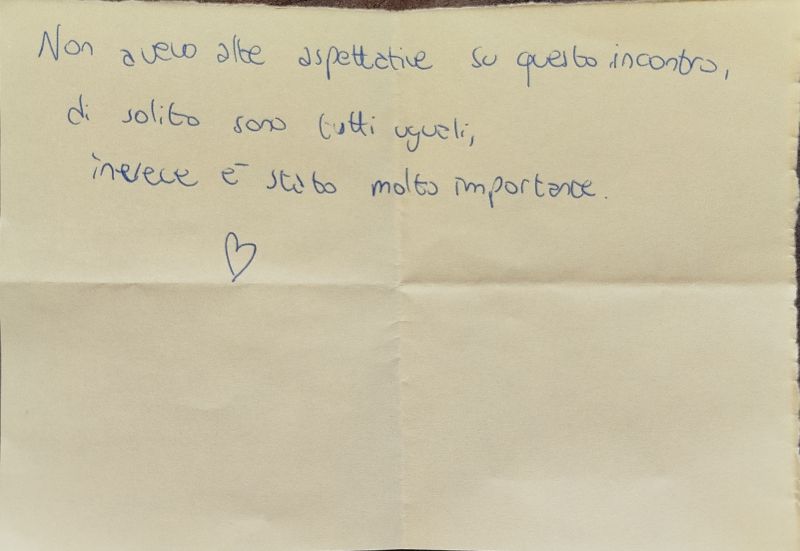 Non avevo alte aspettative su questo incontro,
di solito sono tutti uguali,
invece è stato molto importante.